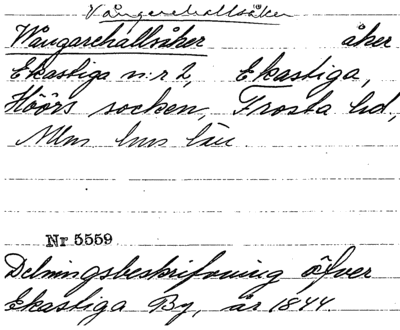 Vångarehallsåker
Wångarehallsåker åker
Ekastiga n:r 2, Ekastiga,
Höörs socken, Frosta hd,
Mlm hus län.
Nr 5559
Delningsbeskrifvning öfver
Ekastiga By, år 1844.